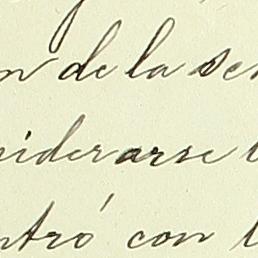 n de la se
iderarse
ntró con l